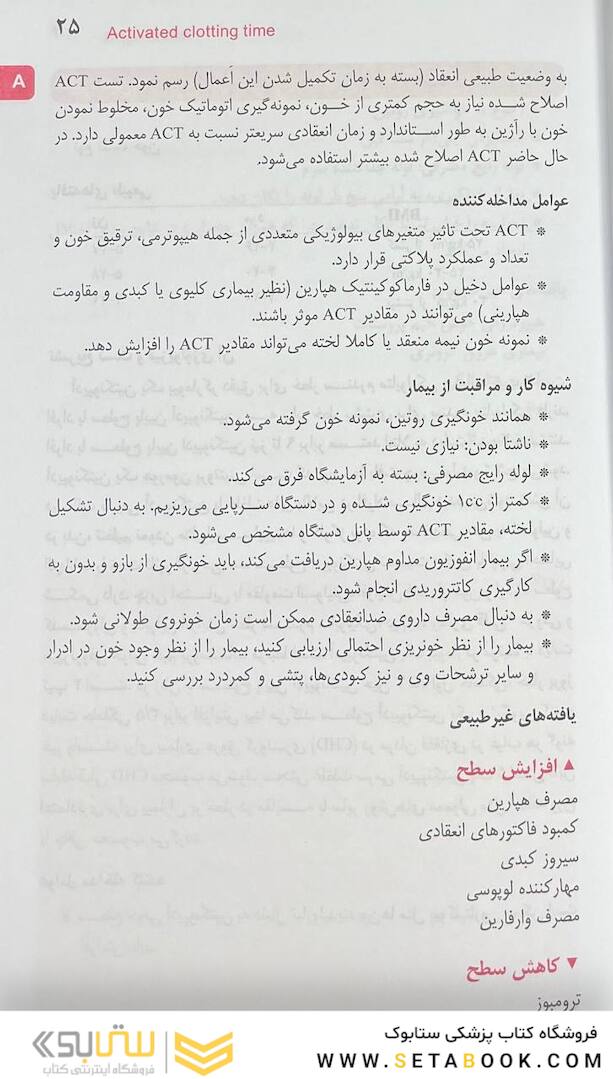 ۲۵ Activated clotting time
A
به وضعیت طبیعی انعقاد (بسته به زمان تکمیل شدن این اَعمال) رسم نمود. تست ACT
اصلاح شده نیاز به حجم کمتری از خون، نمونه‌گیری اتوماتیک خون، مخلوط نمودن
خون با رآژین به طور استاندارد و زمان انعقادی سریعتر نسبت به ACT معمولی دارد. در
حال حاضر ACT اصلاح شده بیشتر استفاده می‌شود.
عوامل مداخله‌کننده
* ACT تحت تاثیر متغیرهای بیولوژیکی متعددی از جمله هیپوترمی، ترقیق خون و
تعداد و عملکرد پلاکتی قرار دارد.
* عوامل دخیل در فارماکوکینتیک هپارین (نظیر بیماری کلیوی یا کبدی و مقاومت
هپارینی) می‌توانند در مقادیر ACT موثر باشند.
* نمونه خون نیمه منعقد یا کاملا لخته می‌تواند مقادیر ACT را افزایش دهد.
شیوه کار و مراقبت از بیمار
* همانند خونگیری روتین، نمونه خون گرفته می‌شود.
* ناشتا بودن: نیازی نیست.
* لوله رایج مصرفی: بسته به آزمایشگاه فرق می‌کند.
* کمتر از ۱cc خونگیری شده و در دستگاه سرپایی می‌ریزیم. به دنبال تشکیل
لخته، مقادیر ACT توسط پانل دستگاه مشخص می‌شود.
* اگر بیمار انفوزیون مداوم هپارین دریافت می‌کند، باید خونگیری از بازو و بدون به
کارگیری کاتتروریدی انجام شود.
* به دنبال مصرف داروی ضدانعقادی ممکن است زمان خونروی طولانی شود.
* بیمار را از نظر خونریزی احتمالی ارزیابی کنید، بیمار را از نظر وجود خون در ادرار
و سایر ترشحات وی و نیز کبودی‌ها، پتشی و کمردرد بررسی کنید.
یافته‌های غیرطبیعی
▲ افزایش سطح
مصرف هپارین
کمبود فاکتورهای انعقادی
سیروز کبدی
مهارکننده لوپوسی
مصرف وارفارین
▼ کاهش سطح
ترومبوز
فروشگاه کتاب پزشکی ستابوک
WWW.SETABOOK.COM
ستابوک
فروشگاه اینترنتی کتاب